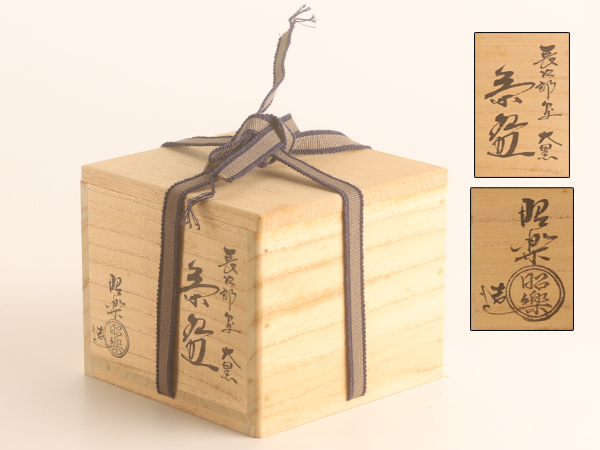 長次郎写 大黒
茶盌
昭樂
造
昭樂
長次郎写 大黒
茶盌
昭樂
昭樂
造